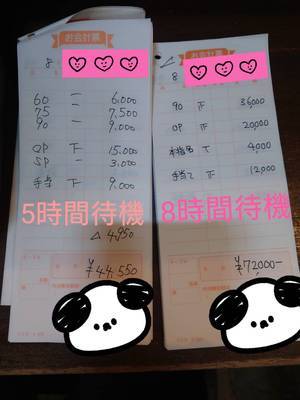 お会計票
8
60 一 6,000
75 一 7,500
90 一 9,000
OP 下 15,000
SP 一 3,000
手当 下 9,000
5時間待機
△4,950
¥44,550
お会計票
8
90 下 36,000
OP 正 20,000
本指名 T 4,000
手当て 下 12,000
8時間待機
¥72000-